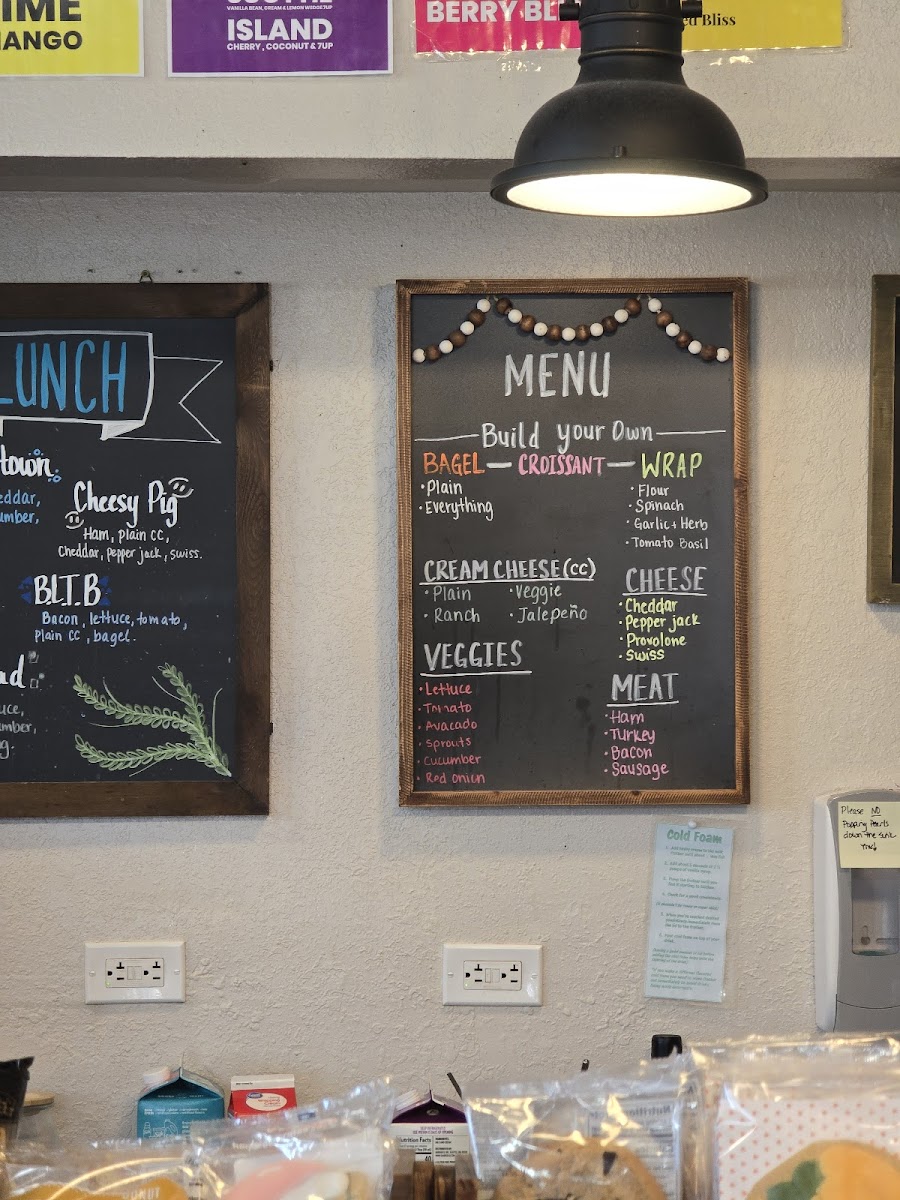 IME
MANGO
VANILLA BEAN, CREAM & LEMON WEDGE 7UP
ISLAND
CHERRY, COCONUT & 7UP
BERRY BL
Bliss
LUNCH
town
eddar,
umber,
Cheesy Pig
Ham, plain cc,
Cheddar, pepper jack, swiss.
B.L.T.B
Bacon, lettuce, tomato,
plain cc, bagel.
ad
uce,
umber,
g.
MENU
Build your Own
BAGEL — CROISSANT — WRAP
· Plain
· Everything
· Flour
· Spinach
· Garlic + Herb
· Tomato Basil
CREAM CHEESE (CC)
· Plain · Veggie
· Ranch · Jalepeño
CHEESE
· Cheddar
· Pepper jack
· Provolone
· Swiss
VEGGIES
· Lettuce
· Tomato
· Avacado
· Sprouts
· Cucumber
· Red onion
MEAT
· Ham
· Turkey
· Bacon
· Sausage
Cold Foam
Please NO
Popping Pearls
down the sink
Nutrition Facts
40